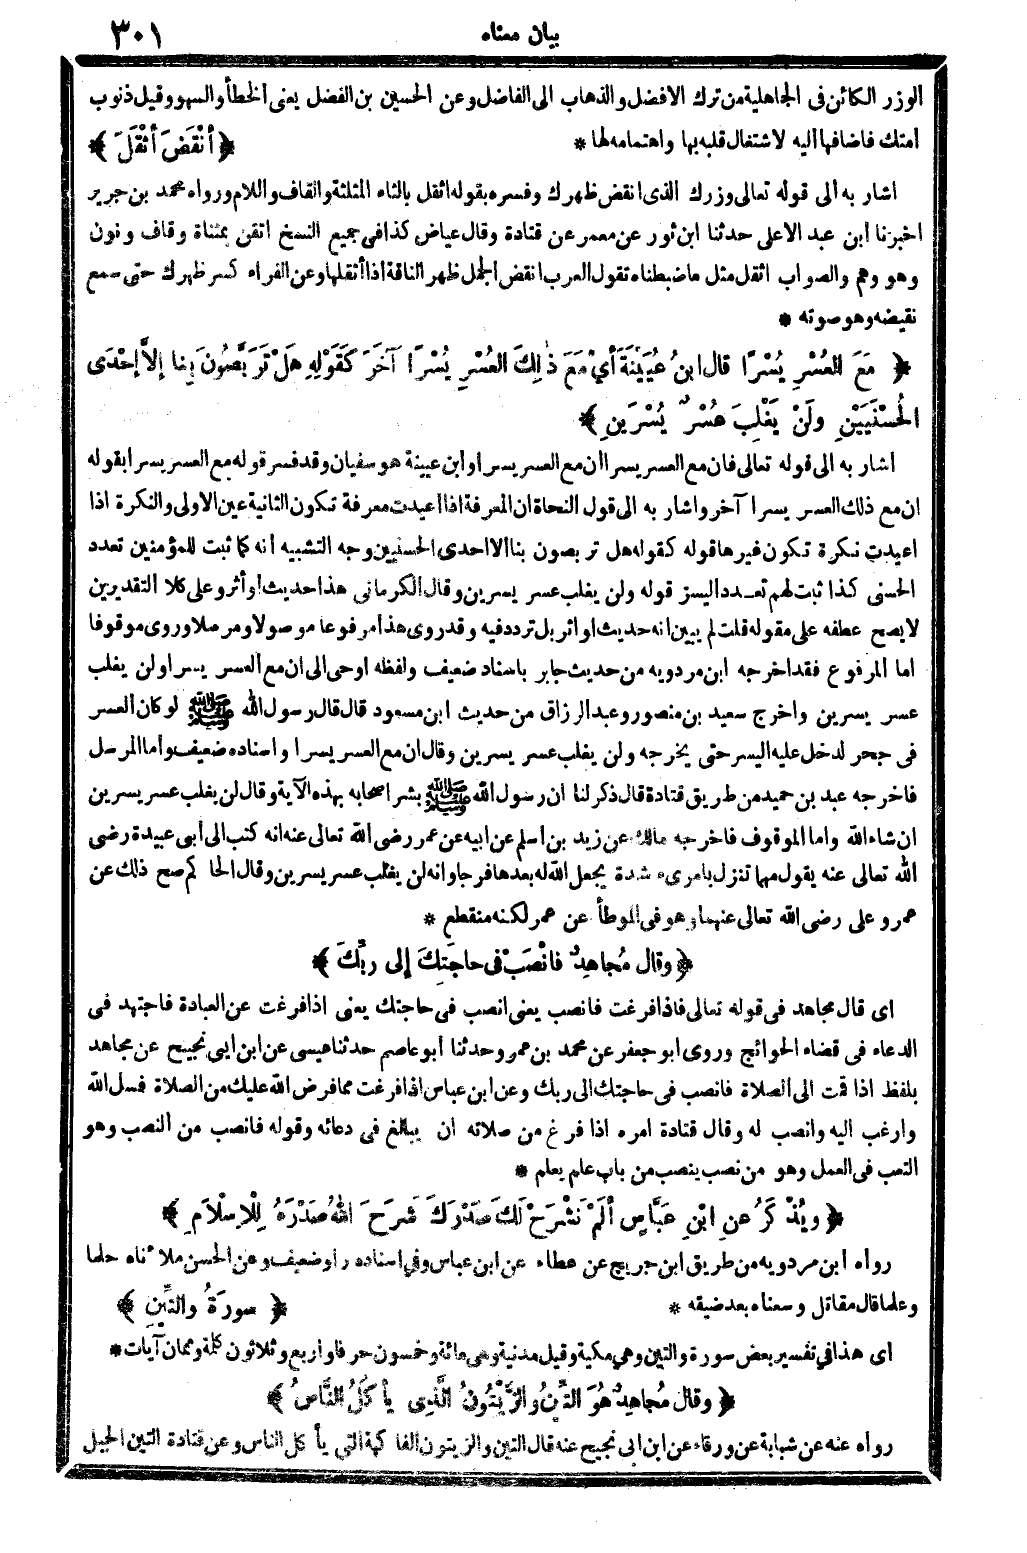 بيان معناه
٣٠١
الوزر الكائن فى الجاهلية من ترك الافضل والذهاب الى الفاضل وعن الحسين بن الفضل يعنى الخطأ والسهو وقيل ذنوب
امتك فاضافها اليه لاشتغال قلبه بها واهتمامه لها * ﴿ أَنْقَضَ أَثْقَلَ ﴾
اشار به الى قوله تعالى وزرك الذى انقض ظهرك وفسره بقوله اثقل بالثاء المثلثة والقاف واللام ورواه محمد بن جرير
اخبرنا ابن عبد الاعلى حدثنا ابن ثور عن معمر عن قتادة وقال عياض كذا فى جميع النسخ اتقن بمثناة وقاف ونون
وهو وهم والصواب اثقل مثل ما ضبطناه تقول العرب انقض الحمل ظهر الناقة اذا أثقلها وعن الفراء كسر ظهرك حتى سمع
نقيضه وهو صوته *
﴿ مَعَ العُسْرِ يُسْرًا قال ابنُ عُيَيْنَةَ أَيْ مَعَ ذٰلِكَ العُسْرِ يُسْرًا آخَرَ كَقَوْلِهِ هَلْ تَرَبَّصُونَ بِنا إلاَّ إحْدَى
الحُسْنَيَيْنِ ولَنْ يَغْلِبَ عُسْرٌ يُسْرَينِ ﴾
اشار به الى قوله تعالى فان مع العسر يسرا ان مع العسر يسرا وابن عيينة هو سفيان وقد فسر قوله مع العسر يسرا بقوله
ان مع ذلك العسر يسرا آخر واشار به الى قول النحاة ان المعرفة اذا اعيدت معرفة تكون الثانية عين الاولى والنكرة اذا
اعيدت نكرة تكون غيرها قوله كقوله هل تربصون بنا الا احدى الحسنيين وجه التشبيه أنه كما ثبت للمؤمنين تعدد
الحسنى كذا ثبت لهم تعدد اليسر قوله ولن يغلب عسر يسرين وقال الكرمانى هذا حديث أو أثر وعلى كلا التقديرين
لا يصح عطفه على مقوله قلت لم يبين انه حديث او اثر بل تردد فيه وقد روى هذا مرفوعا موصولا ومرسلا وروى موقوفا
اما المرفوع فقد اخرجه ابن مردويه من حديث جابر باسناد ضعيف ولفظه اوحى الى ان مع العسر يسرا ولن يغلب
عسر يسرين واخرج سعيد بن منصور وعبد الرزاق من حديث ابن مسعود قال قال رسول الله ﷺ لو كان العسر
فى جحر لدخل عليه اليسر حتى يخرجه ولن يغلب عسر يسرين وقال ان مع العسر يسرا واسناده ضعيف وأما المرسل
فاخرجه عبد بن حميد من طريق قتادة قال ذكر لنا ان رسول الله ﷺ بشر اصحابه بهذه الآية وقال لن يغلب عسر يسرين
ان شاء الله واما الموقوف فاخرجه مالك عن زيد بن اسلم عن ابيه عن عمر رضى الله تعالى عنه انه كتب الى أبى عبيدة رضى
الله تعالى عنه يقول مهما تنزل بامرىء شدة يجعل الله له بعدها فرجا وانه لن يغلب عسر يسرين وقال الحاكم صح ذلك عن
عمر وعلى رضى الله تعالى عنهما وهو فى الموطأ عن عمر لكنه منقطع *
﴿ وقال مُجاهِدٌ فانْصَبْ فى حاجَتِكَ إلى ربِّكَ ﴾
اى قال مجاهد فى قوله تعالى فاذا فرغت فانصب يعنى انصب فى حاجتك يعنى اذا فرغت عن العبادة فاجتهد فى
الدعاء فى قضاء الحوائج وروى ابو جعفر عن محمد بن عمرو حدثنا أبو عاصم حدثنا عيسى عن ابن ابى نجيح عن مجاهد
بلفظ اذا قمت الى الصلاة فانصب فى حاجتك الى ربك وعن ابن عباس اذا فرغت مما فرض الله عليك من الصلاة فسل الله
وارغب اليه وانصب له وقال قتادة امره اذا فرغ من صلاته ان يبالغ فى دعائه وقوله فانصب من النصب وهو
التعب فى العمل وهو من نصب ينصب من باب علم يعلم *
﴿ ويُذْكَرُ عنِ ابْنِ عَبَّاسٍ ألَمْ نَشْرَحْ لَكَ صَدْرَكَ شَرَحَ اللهُ صَدْرَهُ لِلْإسْلاَمِ ﴾
رواه ابن مردويه من طريق ابن جريج عن عطاء عن ابن عباس وفي اسناده راو ضعيف وعن الحسن ملأناه حلما
وعلما قال مقاتل وسعناه بعد ضيقه * ﴿ سورَةُ والتِّينِ ﴾
اى هذا في تفسير بعض سورة والتين وهي مكية وقيل مدنية وهى مائة وخمسون حرفا واربع وثلاثون كلمة وثمان آيات *
﴿ وقال مُجاهِدٌ هُوَ التِّينُ والزَّيْتُونُ الَّذِى يأكُلُ النَّاسُ ﴾
رواه عنه عن شبابة عن ورقاء عن ابن ابى نجيح عنه قال التين والزيتون الفاكهة التي يأكل الناس وعن قتادة التين الجبل